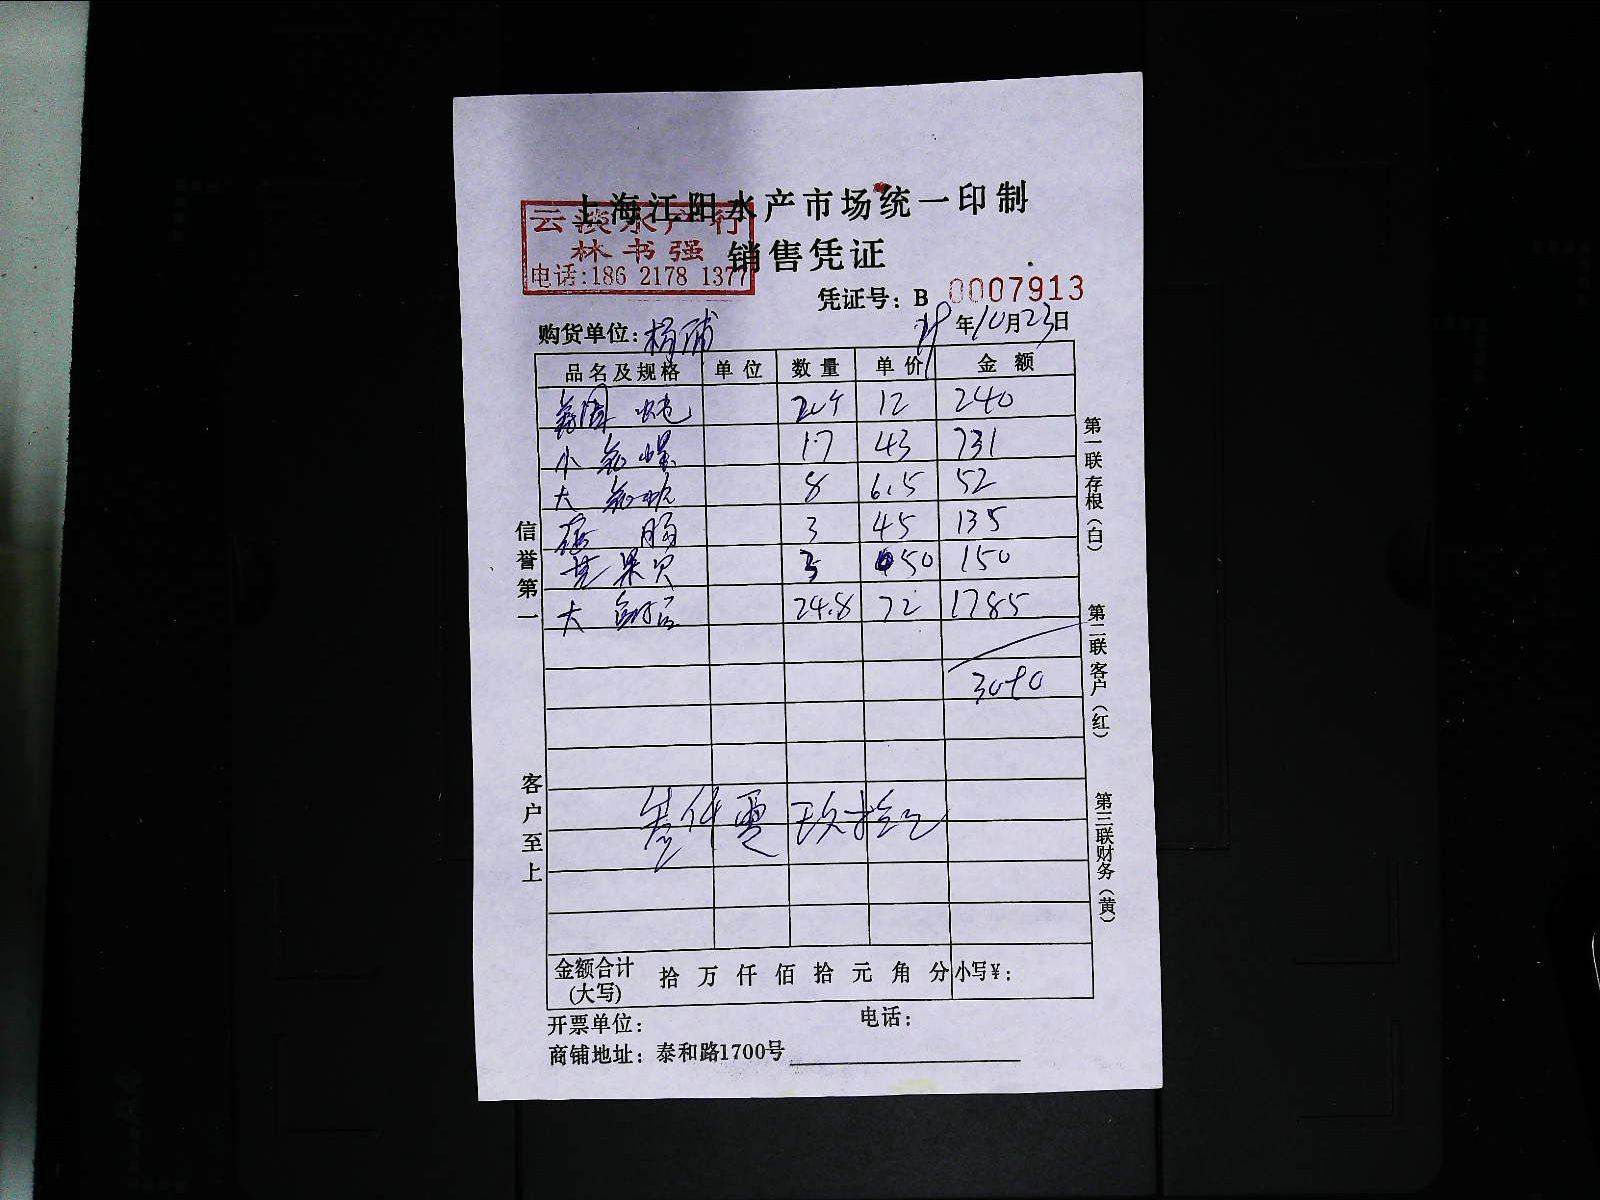 上海江阳水产市场统一印制
云淡水产行
林书强
电话:186 2178 1377
销售凭证
凭证号: B 0007913
购货单位: 杨浦 19年10月23日
品名及规格 单位 数量 单价 金额
12 240
小鲍螺 17 43 731
大 8 6.5 52
肠 3 45 135
苹果贝 3 50 150
大 24.8 72 1785
3090
叁仟零玖拾元
金额合计(大写) 拾 万 仟 佰 拾 元 角 分 小写¥:
开票单位: 电话:
商铺地址: 泰和路1700号
信誉第一
客户至上
第一联存根(白)
第二联客户(红)
第三联财务(黄)